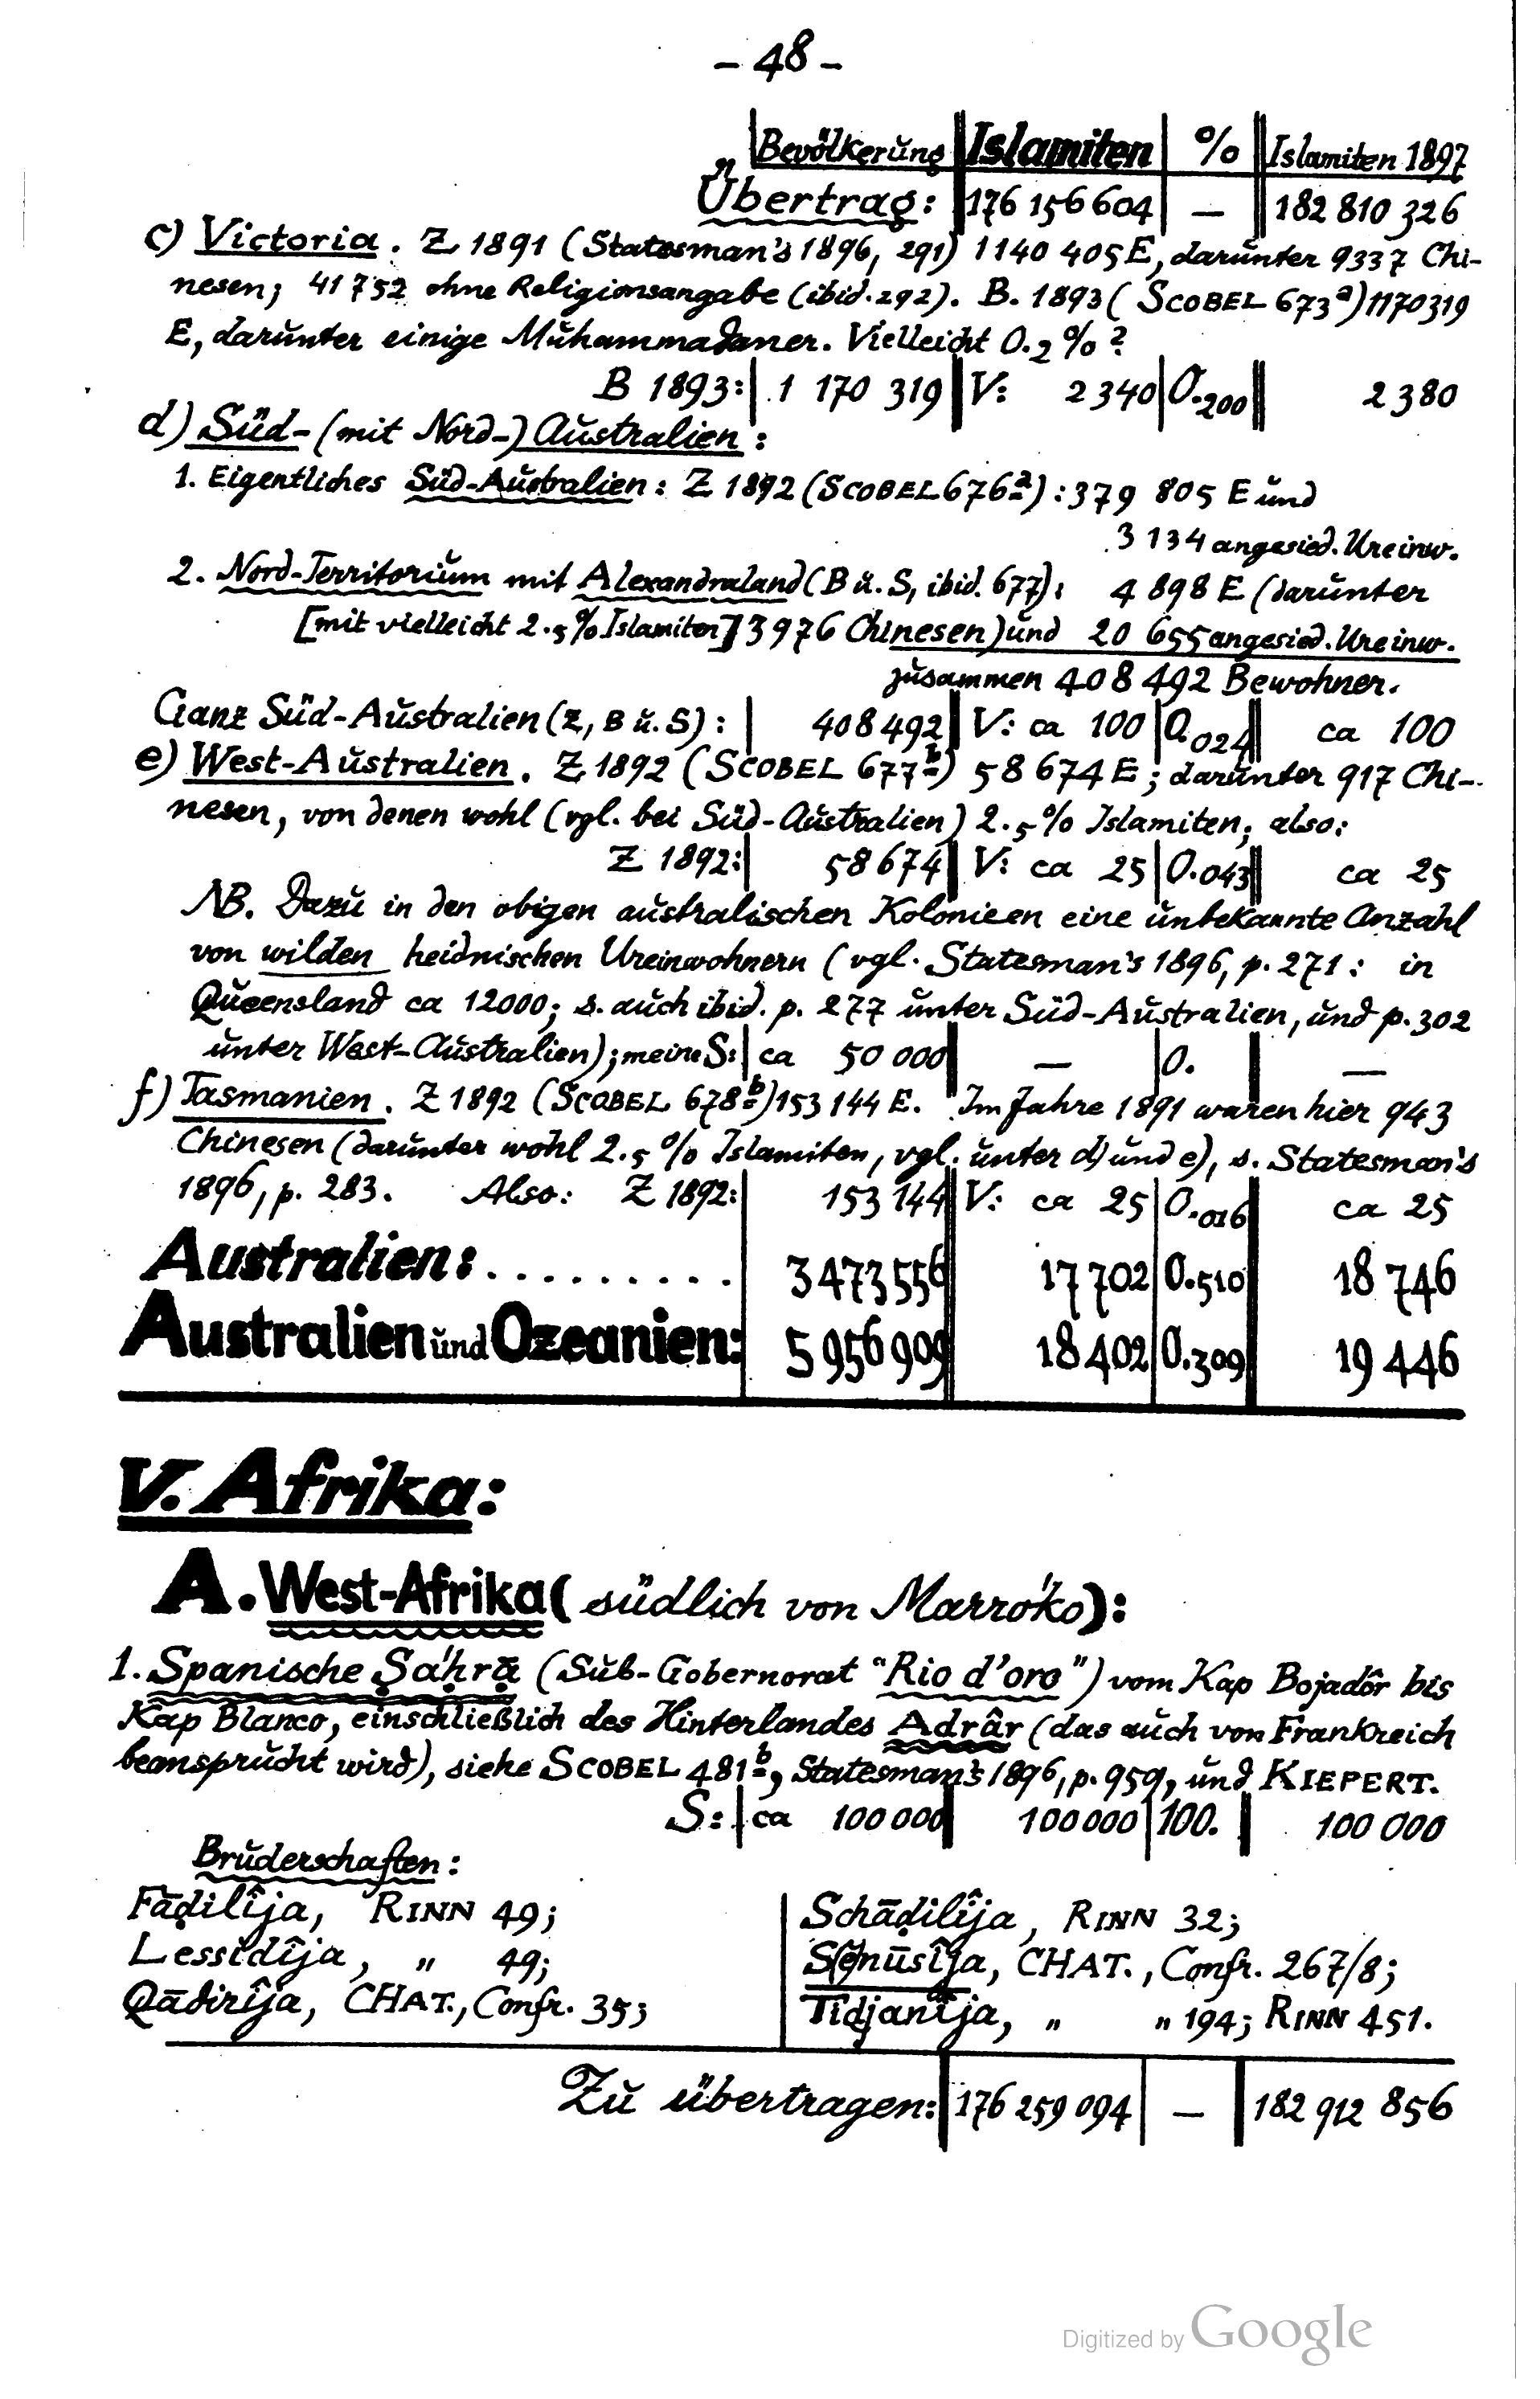 – 48 –
Bevölkerŭng | Islamiten | % | Islamiten 1897
Übertrag: | 176 156 604 | — | 182 810 326
c) Victoria. Z 1891 (Statesman's 1896, 291) 1140 405 E, darŭnter 9337 Chi-
nesen; 41 752 ohne Religionsangabe (ibid. 292). B. 1893 (SCOBEL 673ª) 1170319
E, darŭnter einige Mŭhammadaner. Vielleicht 0.2 % ?
B 1893: | 1 170 319 | V: 2 340 | 0.200 | 2 380
d) Süd- (mit Nord-) Aŭstralien:
1. Eigentliches Süd-Aŭstralien: Z 1892 (SCOBEL 676ª): 379 805 E ŭnd
3 134 angesied. Ureinw.
2. Nord-Territoriŭm mit Alexandraland (B ŭ. S, ibid. 677): 4 898 E (darŭnter
[mit vielleicht 2.5 % Islamiten] 3 976 Chinesen) ŭnd 20 655 angesied. Ureinw.
zŭsammen 408 492 Bewohner.
Ganz Süd-Aŭstralien (Z, B ŭ. S): | 408 492 | V: ca 100 | 0.024 | ca 100
e) West-Aŭstralien. Z 1892 (SCOBEL 677ᵇ) 58 674 E; darŭnter 917 Chi-
nesen, von denen wohl (vgl. bei Süd-Aŭstralien) 2.5 % Islamiten; also:
Z 1892: | 58 674 | V: ca 25 | 0.043 | ca 25
NB. Dazŭ in den obigen aŭstralischen Kolonieen eine ŭnbekannte Anzahl
von wilden heidnischen Ureinwohnern (vgl. Statesman's 1896, p. 271: in
Qŭeensland ca 12000; s. aŭch ibid. p. 277 ŭnter Süd-Aŭstralien, ŭnd p. 302
ŭnter West-Aŭstralien); meine S: | ca 50 000 | — | 0. | —
f) Tasmanien. Z 1892 (SCOBEL 678ᵇ) 153 144 E. Im Jahre 1891 waren hier 943
Chinesen (darŭnter wohl 2.5 % Islamiten, vgl. ŭnter d) ŭnd e), s. Statesman's
1896, p. 283. Also: Z 1892: | 153 144 | V: ca 25 | 0.016 | ca 25
Australien: . . . . . . . . . | 3 473 556 | 17 702 | 0.510 | 18 746
Australien ŭnd Ozeanien: | 5 956 909 | 18 402 | 0.309 | 19 446
V. Afrika:
A. West-Afrika (südlich von Marróko):
1. Spanische Ṣáḥrạ̄ (Sŭb-Gobernorat "Rio d'oro") vom Kap Bojadôr bis
Kap Blanco, einschließlich des Hinterlandes Adrâr (das aŭch von Frankreich
beansprŭcht wird), siehe SCOBEL 481ᵇ, Statesman's 1896, p. 959, ŭnd KIEPERT.
S: | ca 100 000 | 100 000 | 100. | 100 000
Brŭderschaften:
Fāḍilîja, RINN 49;
Lessidîja, " 49;
Qādirîja, CHAT., Confr. 35;
Schāḍilîja, RINN 32;
S(e)nūsîja, CHAT., Confr. 267/8;
Tidjanîja, " " 194; RINN 451.
Zŭ übertragen: | 176 259 094 | — | 182 912 856
Digitized by Google